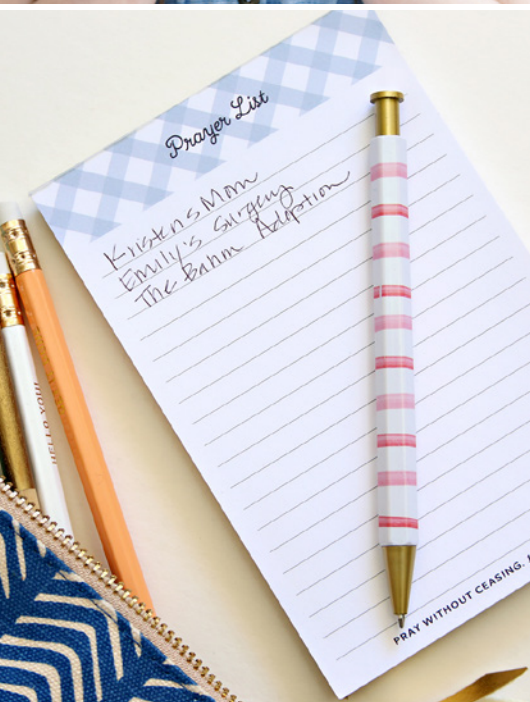 Prayer List
Kristen's Mom
Emily's Surgery
The Bahm Adoption
PRAY WITHOUT CEASING.